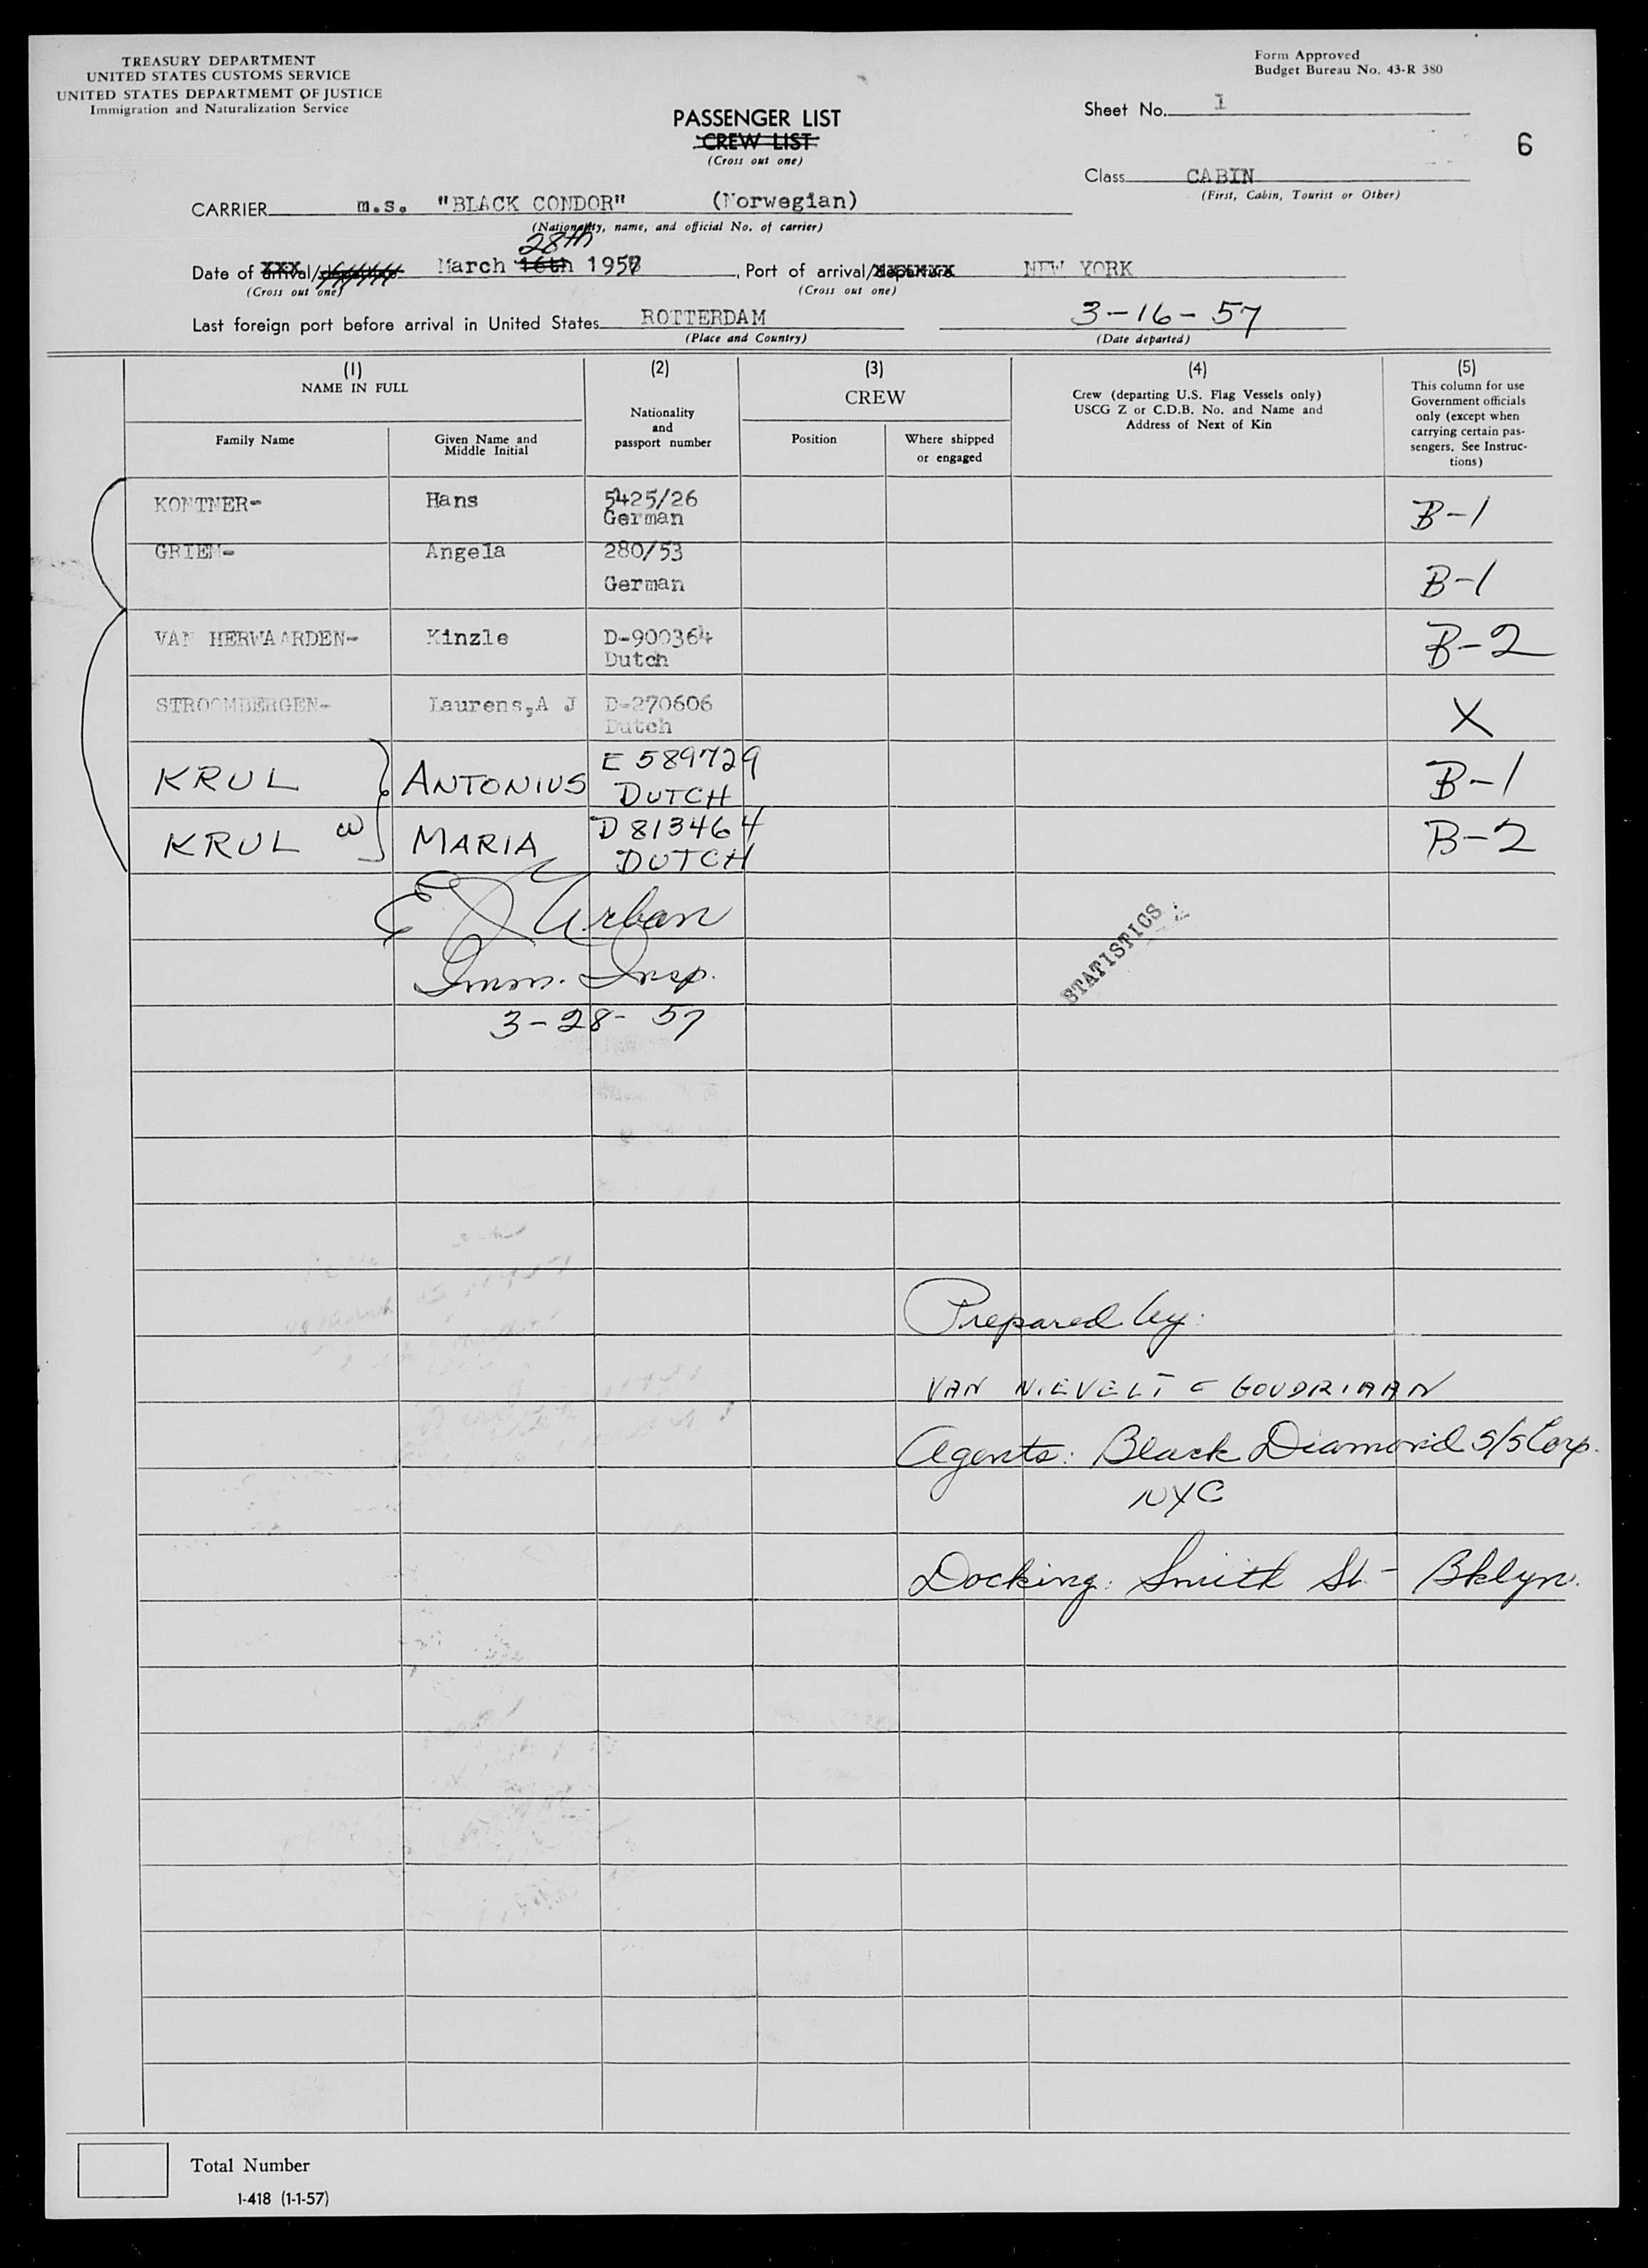 TREASURY DEPARTMENT
UNITED STATES CUSTOMS SERVICE
UNITED STATES DEPARTMEMT OF JUSTICE
Immigration and Naturalization Service
Form Approved
Budget Bureau No. 43-R 380
PASSENGER LIST
CREW LIST
(Cross out one)
Sheet No. 1
6
Class CABIN
(First, Cabin, Tourist or Other)
CARRIER m.s. "BLACK CONDOR" (Norwegian)
(Nationality, name, and official No. of carrier)
28th
Date of arrival/ March 16th 1957, Port of arrival/departure NEW YORK
(Cross out one) (Cross out one)
Last foreign port before arrival in United States ROTTERDAM 3-16-57
(Place and Country) (Date departed)
(1) (2) (3) (4) (5)
NAME IN FULL
Family Name
Given Name and
Middle Initial
Nationality
and
passport number
CREW
Position
Where shipped
or engaged
Crew (departing U.S. Flag Vessels only)
USCG Z or C.D.B. No. and Name and
Address of Next of Kin
This column for use
Government officials
only (except when
carrying certain pas-
sengers. See Instruc-
tions)
KONTNER- Hans 5425/26 B-1
German
GRIEN- Angela 280/53 B-1
German
VAN HERWAARDEN- Kinzle D-900364 B-2
Dutch
STROOMBERGEN- Laurens,A J D-270606 X
Dutch
KRUL ANTONIUS E 589729 B-1
DUTCH
KRUL W MARIA D 813464 B-2
DUTCH
E J Urban
Imm. Insp.
3-28-57
STATISTICS
Prepared by:
VAN NIEVELT & GOUDRIAAN
Agents: Black Diamond S/S Corp.
NYC
Docking: Smith St - Bklyn.
Total Number
I-418 (1-1-57)